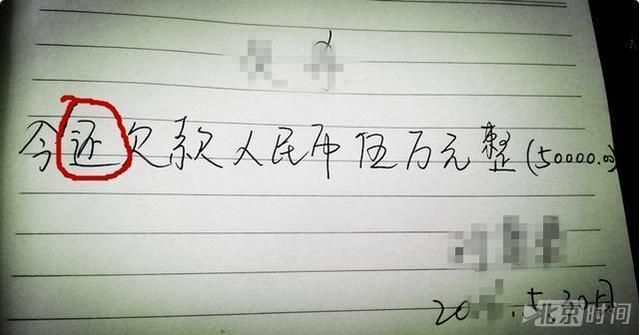 今还欠款人民币伍万元整(50000.00)
20 .5.30日
北京时间